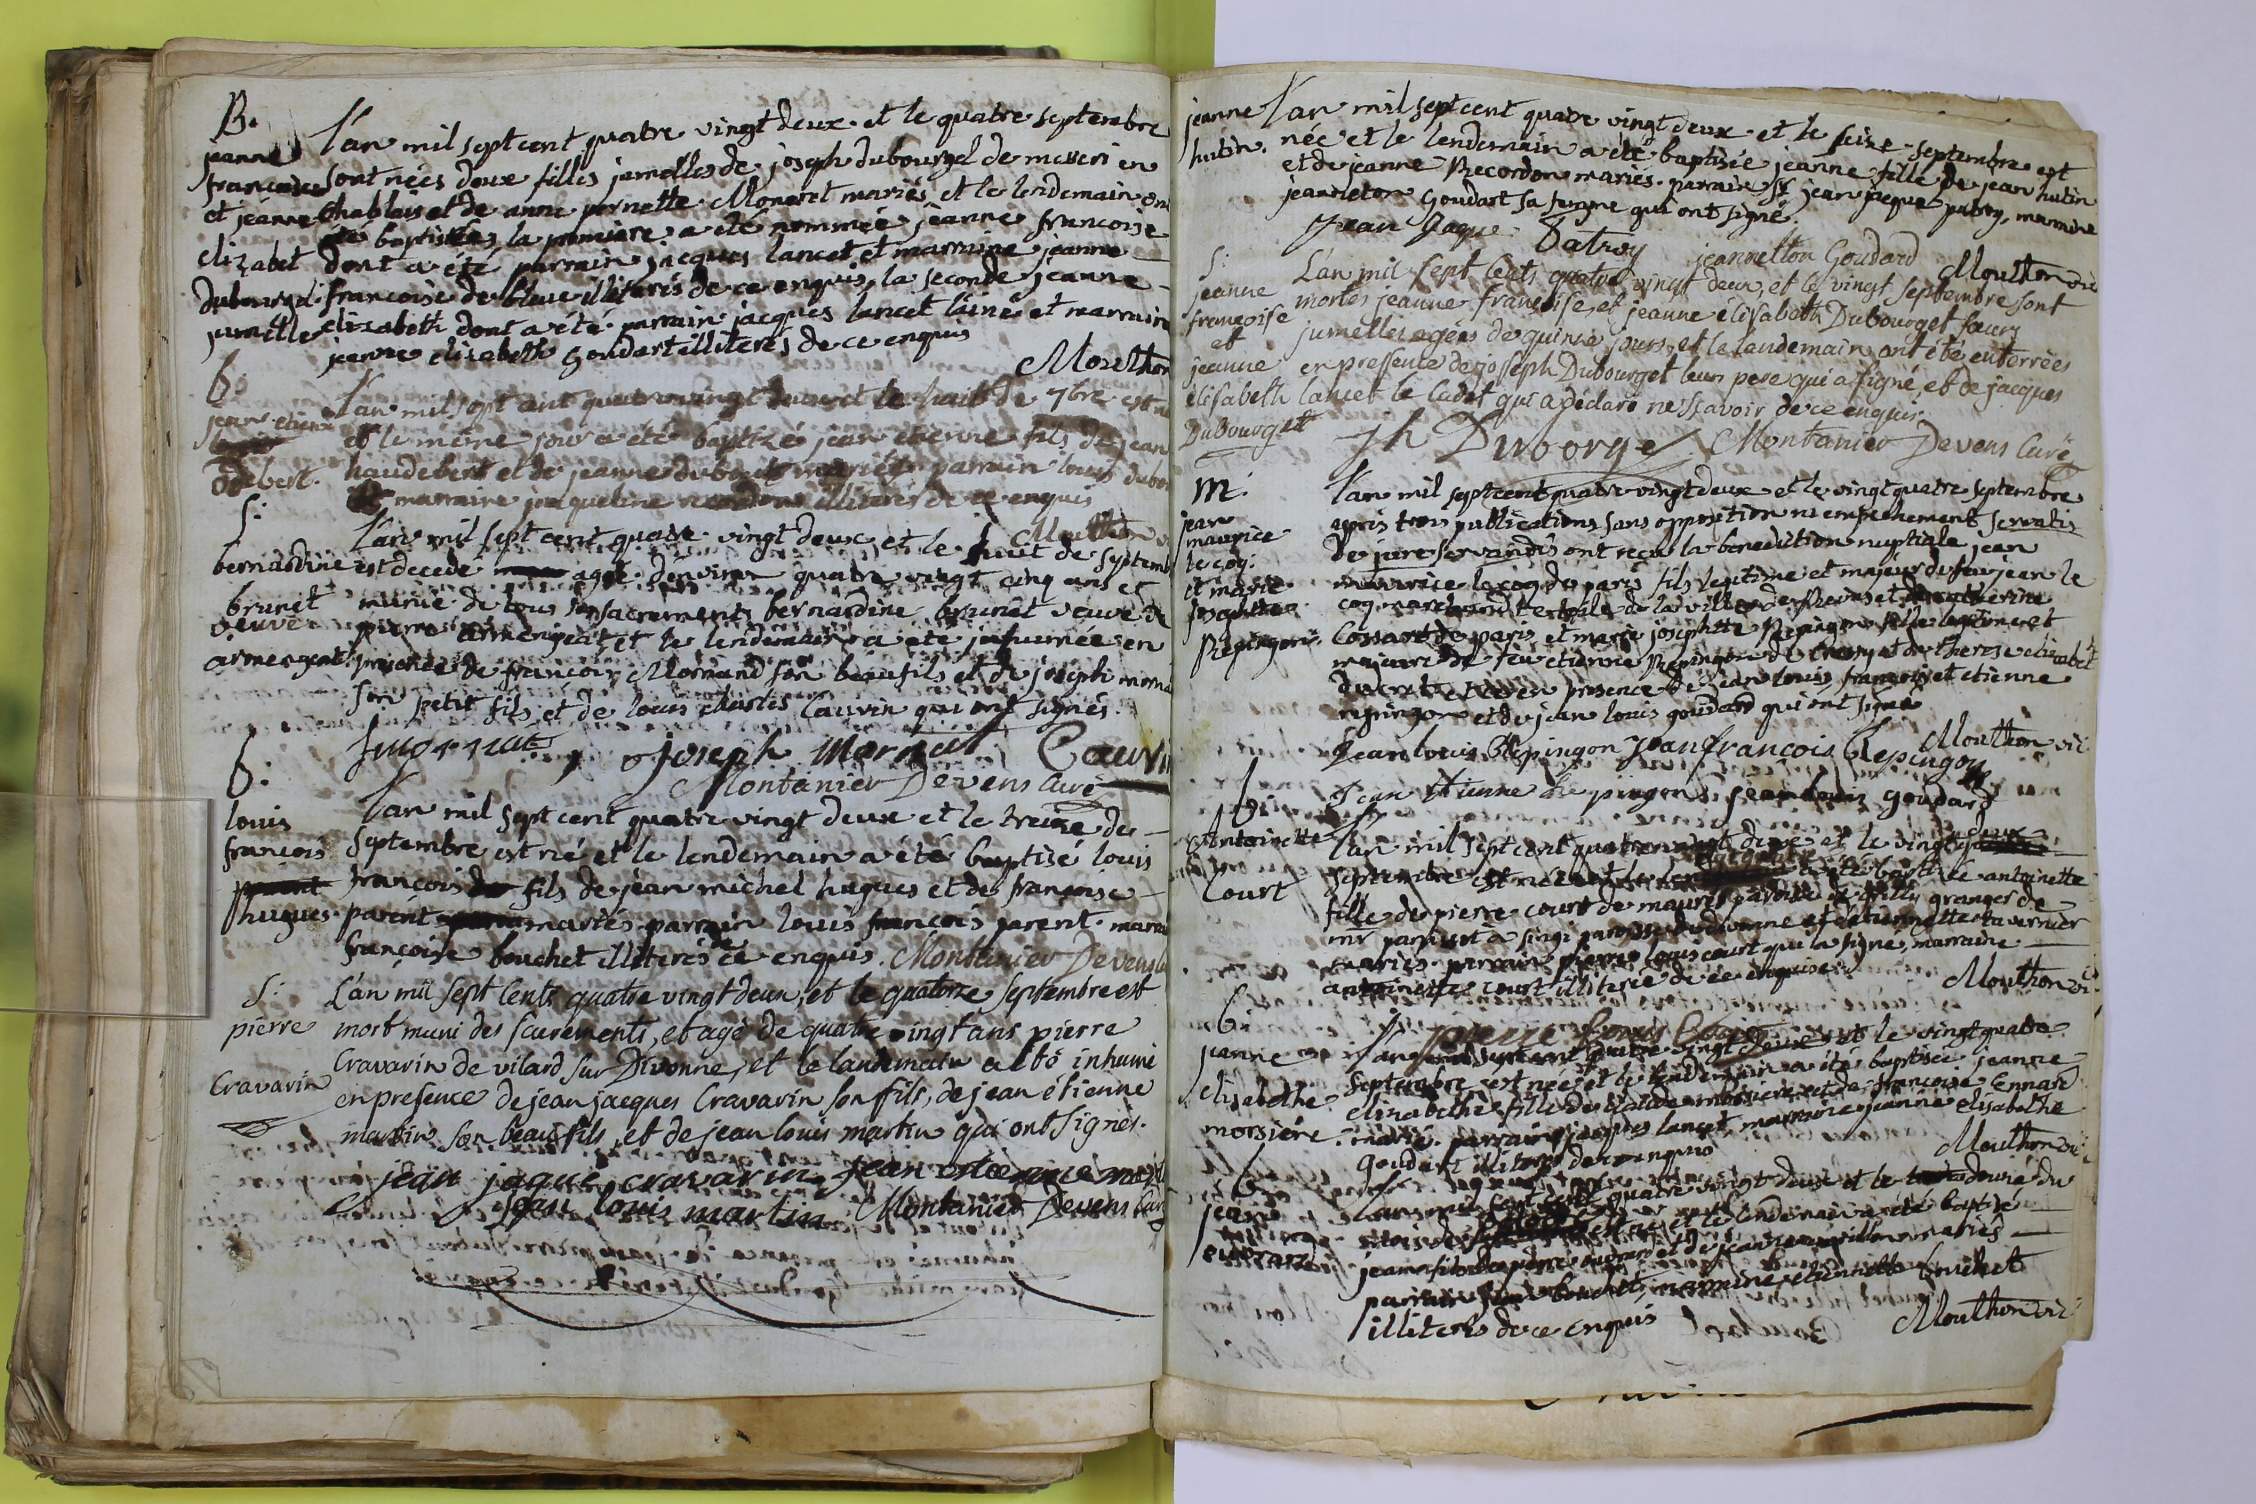 B.
jeanne
francoise
et jeanne
elizabet
Dubourgel
jumelle
l'an mil sept cent quatre vingt deux et le quatre septembre
sont nées deux filles jumelles de joseph dubourgel de messeri en
Chablais et de anne pernette Moneret mariés et le lendemain on
été baptisées, la premiere a été nommée jeanne francoise
dont a été parrain jacques lancet et marraine jeanne
francoise de bleue illiterés de ce enquis, la seconde jeanne
elizabeth dont a été parrain jacques lancet l'ainé et marraine
jeanne elizabeth Goudart illiterés de ce enquis
Mouthon
b:
jean etienne
odebert.
l'an mil sept cent quatre vingt deux et le huit de 7bre est né
et le même jour a été baptizé jean etienne fils de jean
haudebert et de jeanne dubois mariés parrain louis dubois
marraine jaqueline recordon illiterés de ce enquis
Mouthon
S:
bernardine
brunet
veuve
armengeat
l'an mil sept cent quatre vingt deux et le huit de septembre
est decedé agée d'environ quatre vingt cinq ans et
munie de tous sonsacrements bernardine brunet veuve de
pierre armengeat, et le lendemain a été inhumée en
presence de françois Mornand son beaufils et de joseph morna
son petit fils et de louis charles Cauvin qui ont signés.
fmornat joseph mornat Cauvin
Montanier Devens Curé
b:
louis
francois
hugues
l'an mil sept cent quatre vingt deux et le treize de
septembre est né et le lendemain a été baptisé louis
francois fils de jean michel hugues et de françoise
parent mariés parrain louis francois parent. marraine
françoise bouchet illiterés de ce enquis. Montanier Devens
S:
pierre
Cravarin
L'an mil sept cents quatre vingt deux, et le quatorze septembre est
mort muni des sacrements, et agé de quatre vingt ans pierre
Cravarin de vilard sur Divonne, et le landemain a été inhumé
en presence de jean jacques Cravarin son fils, de jean étienne
martin son beau fils, et de jean louis martin qui ont signés.
jean jaque cravarin jean etienne martin
jean louis martin Montanier Devens Curé
jeanne
hutin.
l'an mil sept cent quatre vingt deux et le seize septembre est
née et le lendemain a été baptisée jeanne fille de jean hutin
et de jeanne Recordon mariés. parrain Sr jean jaque patry, marraine
jeanneton Goudart sa femme qui ont signé.
Jean Jaque Patrey jeannetton Goudard
Mouthon vic
S:
jeanne
françoise
et
jeanne
élisabeth
Dubourget
L'an mil sept cents quatre vingt deux, et le vingt septembre sont
mortes jeanne françoise, et jeanne élisabeth Dubourget sœurs
jumelles agées de quinze jours, et le landemain ont été enterrées
en pressence de joseph Dubourget leur pere qui a signé, et de jacques
lancet le cadet qui a déclaré ne ssavoir de ce enquis.
jh Duborge Montanier Devens Curé
m:
jean
maurice
lecoq
et marie
josephtte
Repingon.
l'an mil sept cent quatre vingt deux et le vingt quatre septembre
apris trois publications sans opposition ni empechement servatis
de jure servandis ont reçu la benediction nuptiale jean
maurice lecoq de paris fils legitime et majeur de feu jean le
coq marchand de la ville de et de catherine
Cossart de paris, et marie josephtte Repingon fille legitime et
majeure de feu etienne Repingon de Crassy et de therese elizabet
ducret et ce en presence de jean louis, françois et etienne
repingon et de jean louis goudard qui ont signé
Mouthon vic
Jean louis Repingon jean françois Repingon
Jean Etienne Repingon jean louis goudard
b.
Antoinette
Court
l'an mil sept cent quatre vingt deux et le vingt deux
septembre est née et le a été baptisée antoinette
fille de pierre court de mauris paroisse de grilly granger de
mr parisot à singi paroisse de divonne et d'etiennette tavernier
mariés. parrain pierre louis court qui a signé, marraine
antoinette court illiterée de ce enquise.
Mouthon vic
pierre louis Court
b:
jeanne
elisabethe
morsiére.
l'an mil sept cent quatre vingt deux et le vingt quatre
septembre est née et le lendemain a été baptisée jeanne
elizabethe fille de claude morsiere et de françoise Ennard
mariés. parrain jacques lancet, marraine jeanne elisabethe
Goudart illiterés de ce enquis
Mouthon vic
b.
jean
l'an mil sept cent quatre vingt deux et le douze du
mois de est né et le lendemain a été baptizé
jean fils de pierre et de jeanne mariés
parrain jean bouchet, marraine etiennette bouchet
illiterés de ce enquis
Mouthon vic